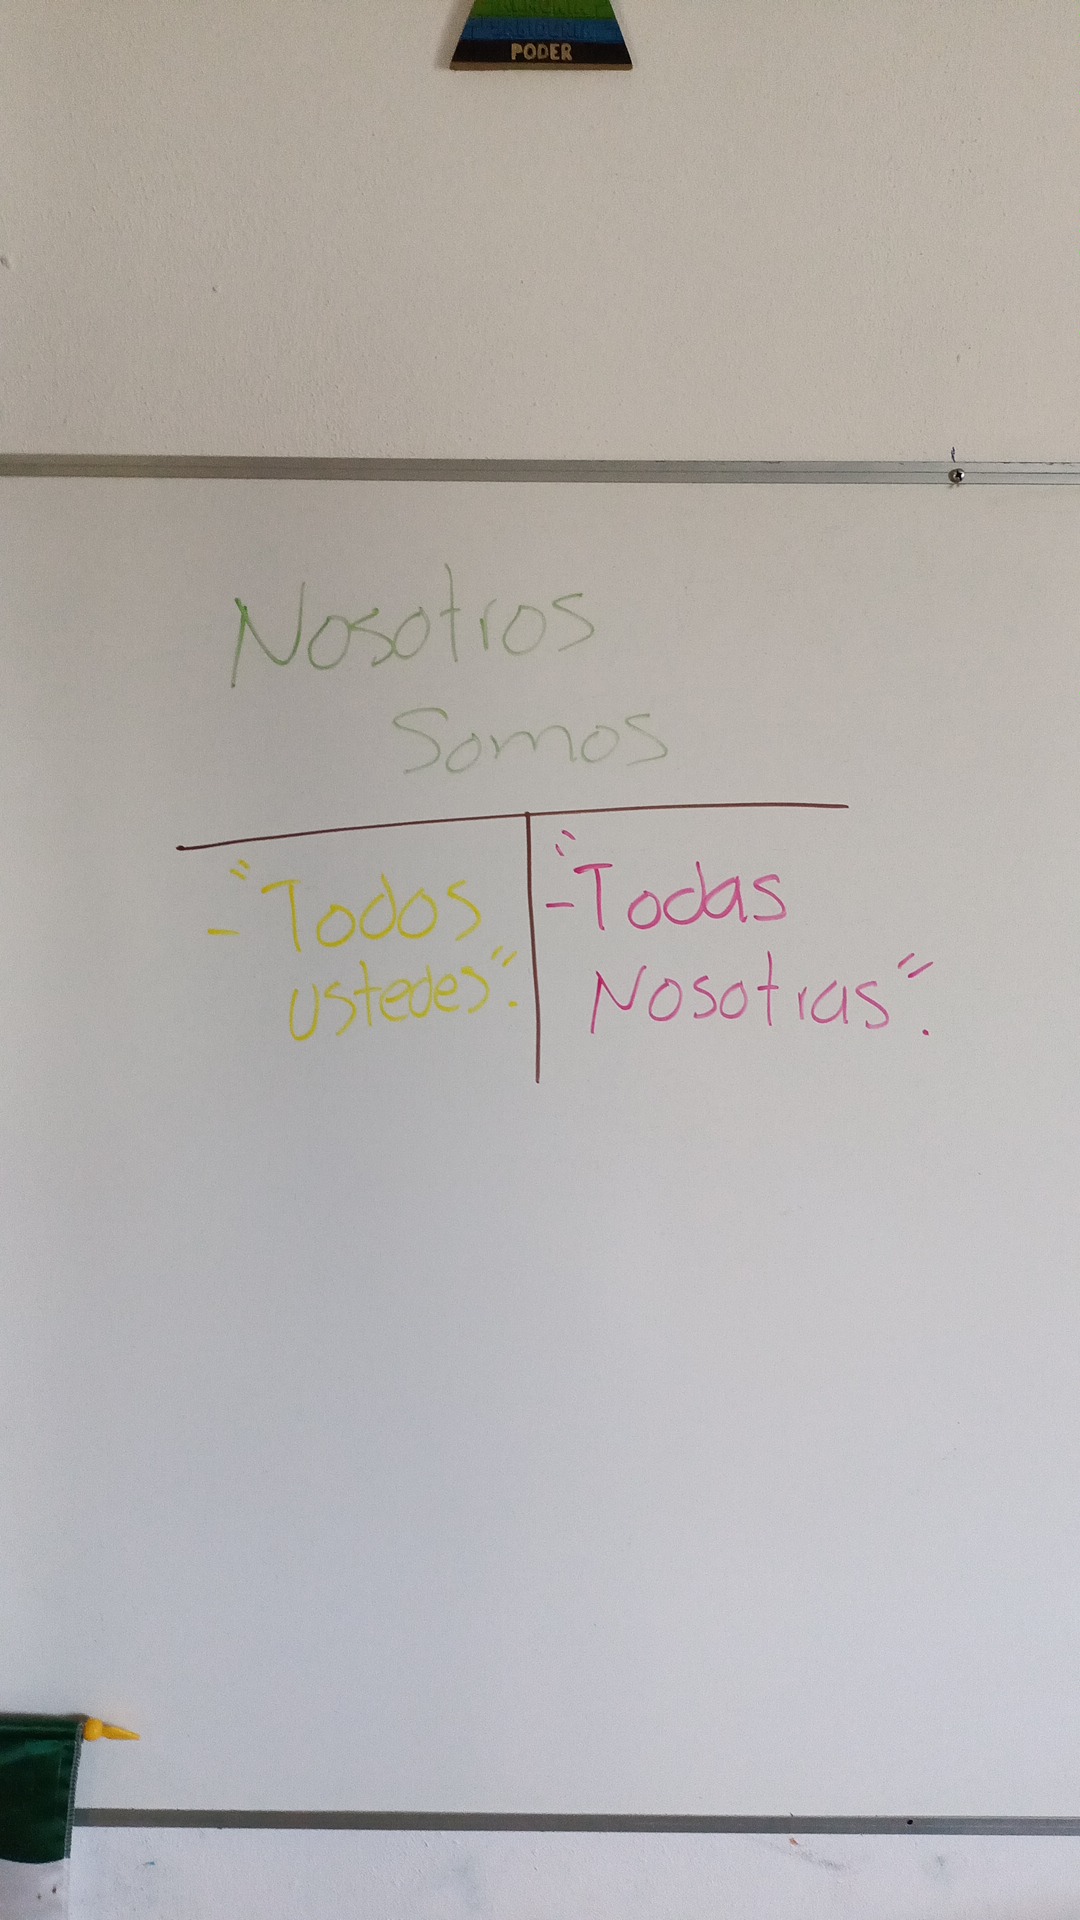 PODER
Nosotros
Somos
- "Todos
ustedes".
- "Todas
Nosotras".